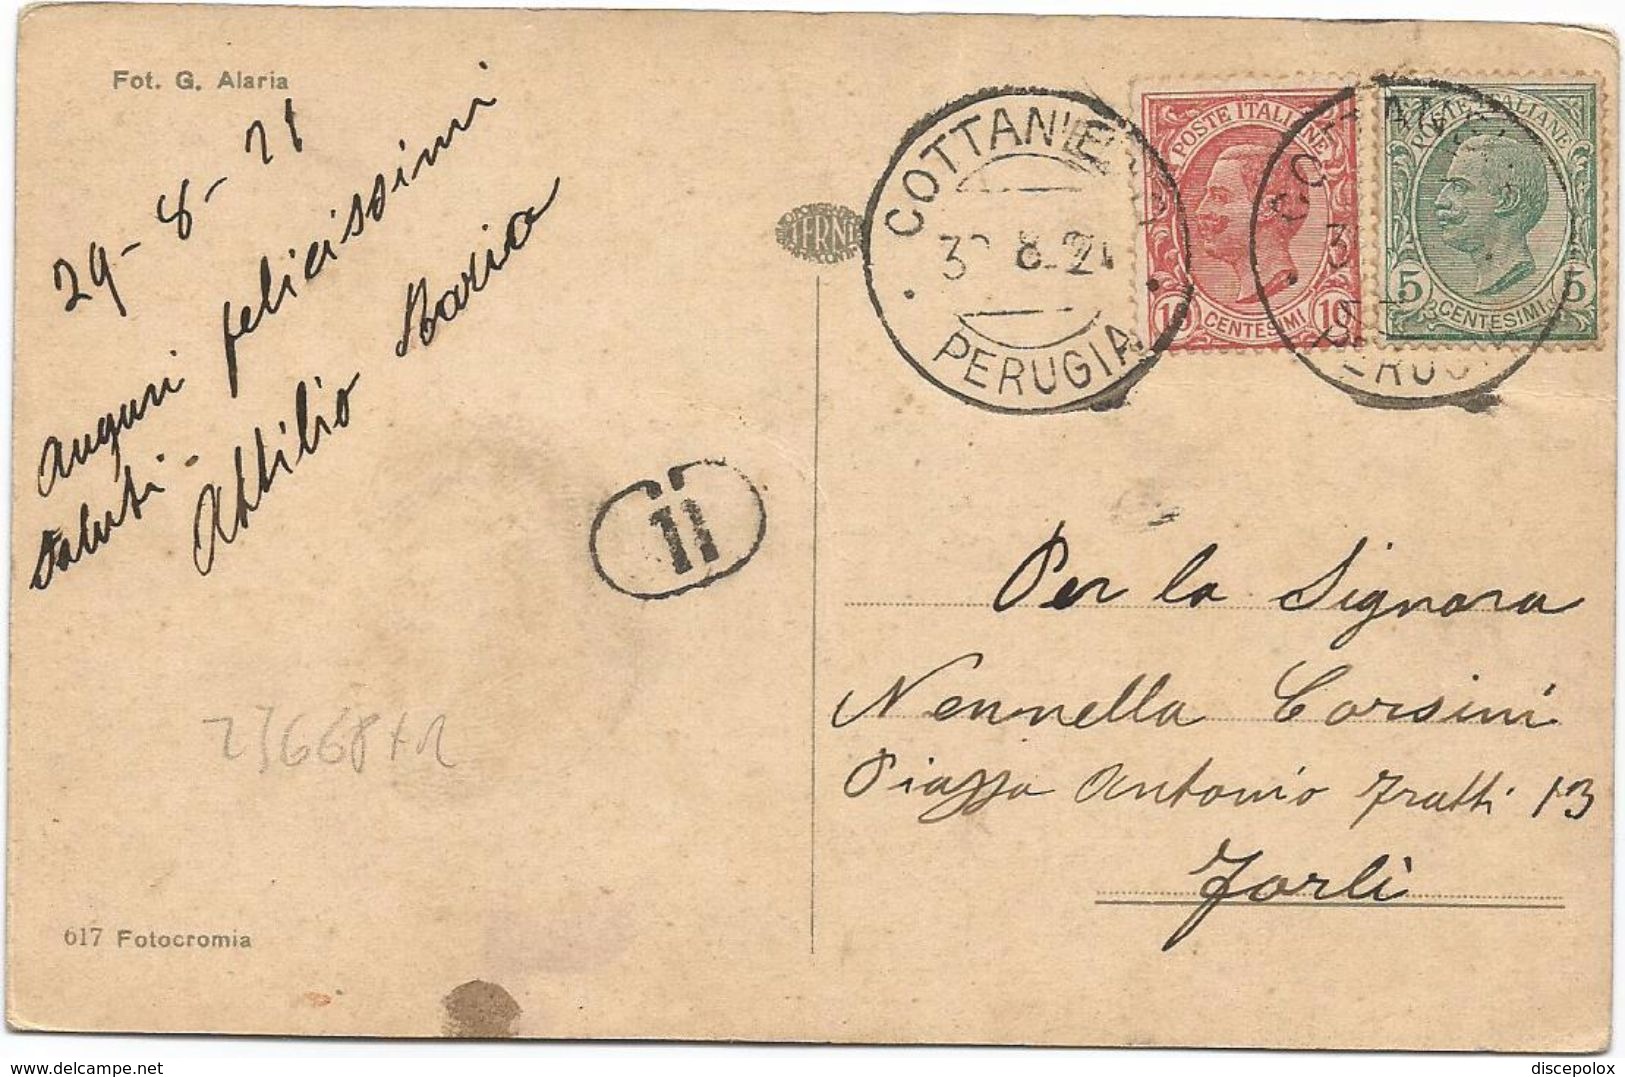 Fot. G. Alaria
29-8-21
Auguri felicissimi
saluti -
Attilio Maria
617 Fotocromia
23668+2
TERNI
11
COTTANELLO
30 8 21
PERUGIA
POSTE ITALIANE
10 CENTESIMI 10
POSTE ITALIANE
5 CENTESIMI 5
PERUGIA
Per la Signora
Nennella Corsini
Piazza Antonio Fratti 13
Forlì
www.delcampe.net
discepolox